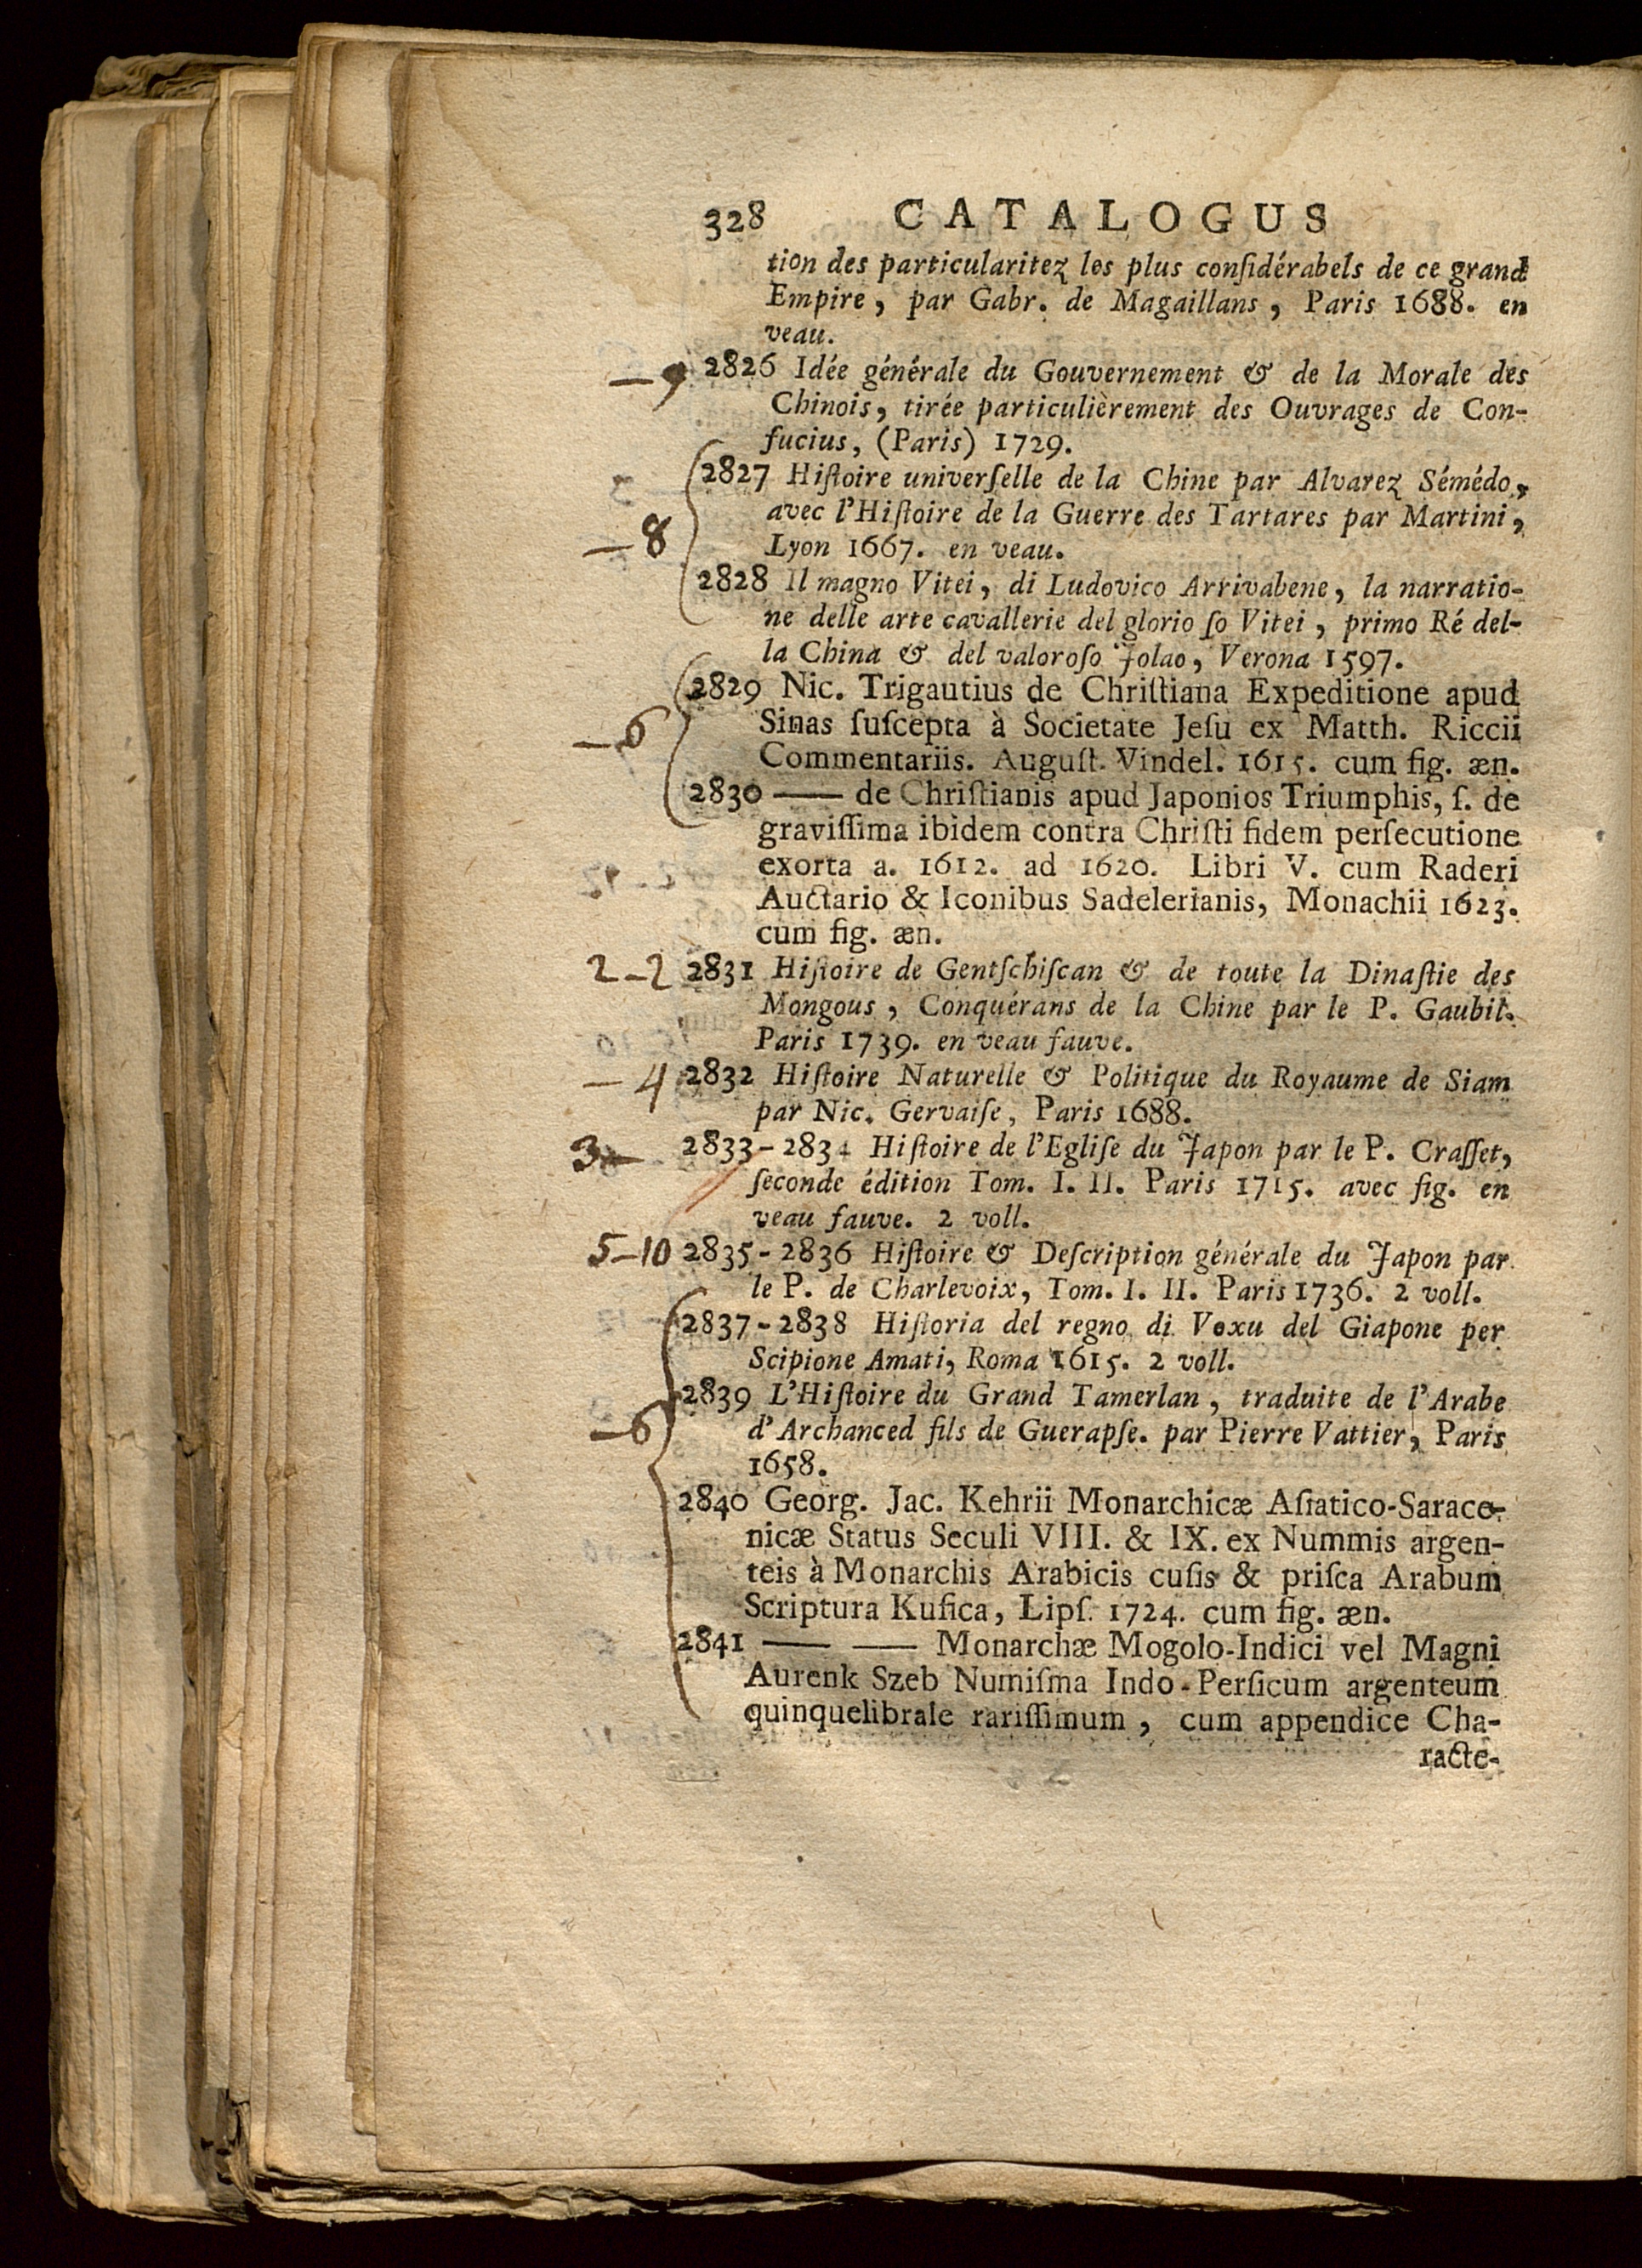 328 CATALOGUS
tion des particularitez les plus conſidérabels de ce grand
Empire, par Gabr. de Magaillans, Paris 1688. en
veau.
— 9 2826 Idée générale du Gouvernement & de la Morale des
Chinois, tirée particulièrement des Ouvrages de Con-
fucius, (Paris) 1729.
2827 Hiſtoire univerſelle de la Chine par Alvarez Sémédo,
avec l'Hiſtoire de la Guerre des Tartares par Martini,
— 8 Lyon 1667. en veau.
2828 Il magno Vitei, di Ludovico Arrivabene, la narratio-
ne delle arte cavallerie del glorio ſo Vitei, primo Ré del-
la China & del valoroſo Jolao, Verona 1597.
2829 Nic. Trigautius de Chriſtiana Expeditione apud
— 6 Sinas ſuſcepta à Societate Jeſu ex Matth. Riccii
Commentariis. Auguſt. Vindel. 1615. cum fig. æn.
2830 —— de Chriſtianis apud Japonios Triumphis, ſ. de
graviſſima ibidem contra Chriſti fidem perſecutione
exorta a. 1612. ad 1620. Libri V. cum Raderi
Auctario & Iconibus Sadelerianis, Monachii 1623.
cum fig. æn.
2 — 2 2831 Hiſtoire de Gentſchiſcan & de toute la Dinaſtie des
Mongous, Conquérans de la Chine par le P. Gaubil.
Paris 1739. en veau fauve.
— 4 2832 Hiſtoire Naturelle & Politique du Royaume de Siam
par Nic. Gervaiſe, Paris 1688.
3 — 2833-2834 Hiſtoire de l'Egliſe du Japon par le P. Craſſet,
ſeconde édition Tom. I. II. Paris 1715. avec fig. en
veau fauve. 2 voll.
5 — 10 2835-2836 Hiſtoire & Deſcription générale du Japon par
le P. de Charlevoix, Tom. I. II. Paris 1736. 2 voll.
2837-2838 Hiſtoria del regno di Voxu del Giapone per
Scipione Amati, Roma 1615. 2 voll.
2839 L'Hiſtoire du Grand Tamerlan, traduite de l'Arabe
— 6 d'Archanced fils de Guerapſe. par Pierre Vattier, Paris
1658.
2840 Georg. Jac. Kehrii Monarchicæ Aſiatico-Sarace-
nicæ Status Seculi VIII. & IX. ex Nummis argen-
teis à Monarchis Arabicis cuſis & priſca Arabum
Scriptura Kufica, Lipſ. 1724. cum fig. æn.
2841 —— —— Monarchæ Mogolo-Indici vel Magni
Aurenk Szeb Numiſma Indo-Perſicum argenteum
quinquelibrale rariſſimum, cum appendice Cha-
racte-